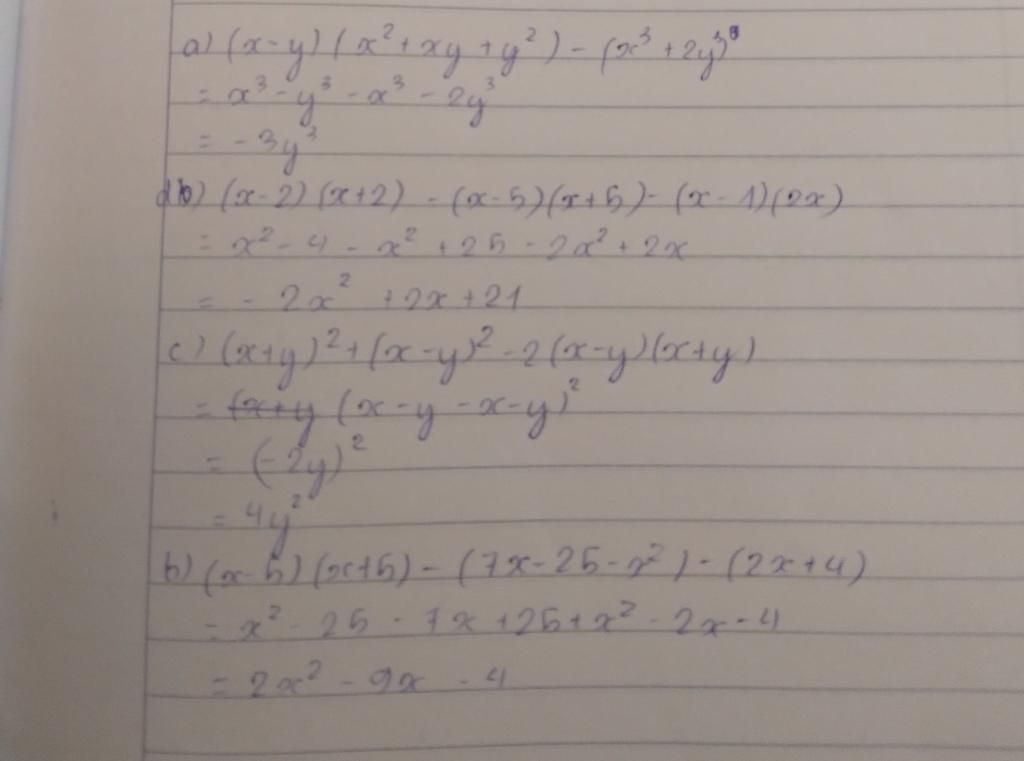 a) (x-y)(x²+xy+y²)-(x³+2y³)
= x³-y³-x³-2y³
= -3y³
d) (x-2)(x+2)-(x-5)(x+5)-(x-1)(2x)
= x²-4-x²+25-2x²+2x
= -2x²+2x+21
c) (x+y)²+(x-y)²-2(x-y)(x+y)
= (x-y-x-y)²
= (-2y)²
= 4y²
b) (x-5)(x+5)-(7x-25-x²)-(2x+4)
= x²-25-7x+25+x²-2x-4
= 2x²-9x-4